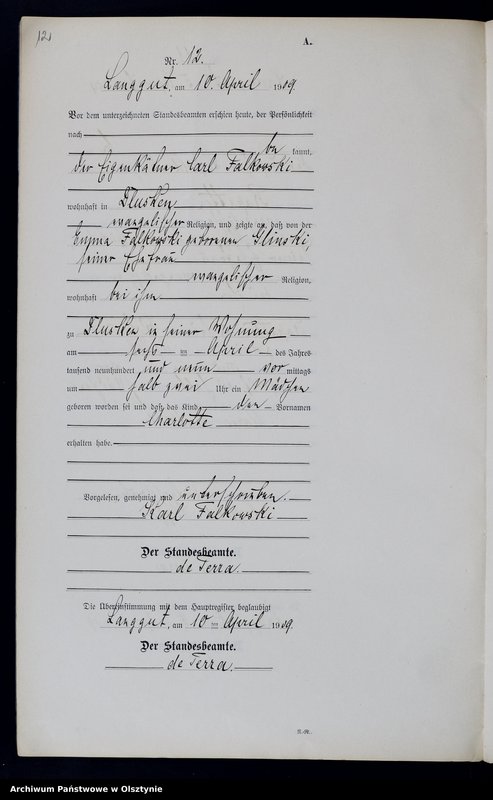 12
A.
Nr. 12.
Langgut, am 10. April 1909.
Vor dem unterzeichneten Standesbeamten erschien heute, der Persönlichkeit
nach
be kannt,
der Eigenkätner Carl Falkowski
wohnhaft in Dlusken
evangelischer Religion, und zeigte an, daß von der
Emma Falkowski geborenen Glinski,
seiner Ehefrau
evangelischer Religion,
wohnhaft bei ihm
zu Dlusken in seiner Wohnung
am sechs ten April des Jahres
tausend neunhundert und neun vor mittags
um halb zwei Uhr ein Mädchen
geboren worden sei und daß das Kind den Vornamen
Charlotte
erhalten habe.
Vorgelesen, genehmigt und unterschrieben.
Karl Falkowski
Der Standesbeamte.
de Terra.
Die Übereinstimmung mit dem Hauptregister beglaubigt
Langgut, am 10 ten April 1909
Der Standesbeamte.
de Terra.
Archiwum Państwowe w Olsztynie